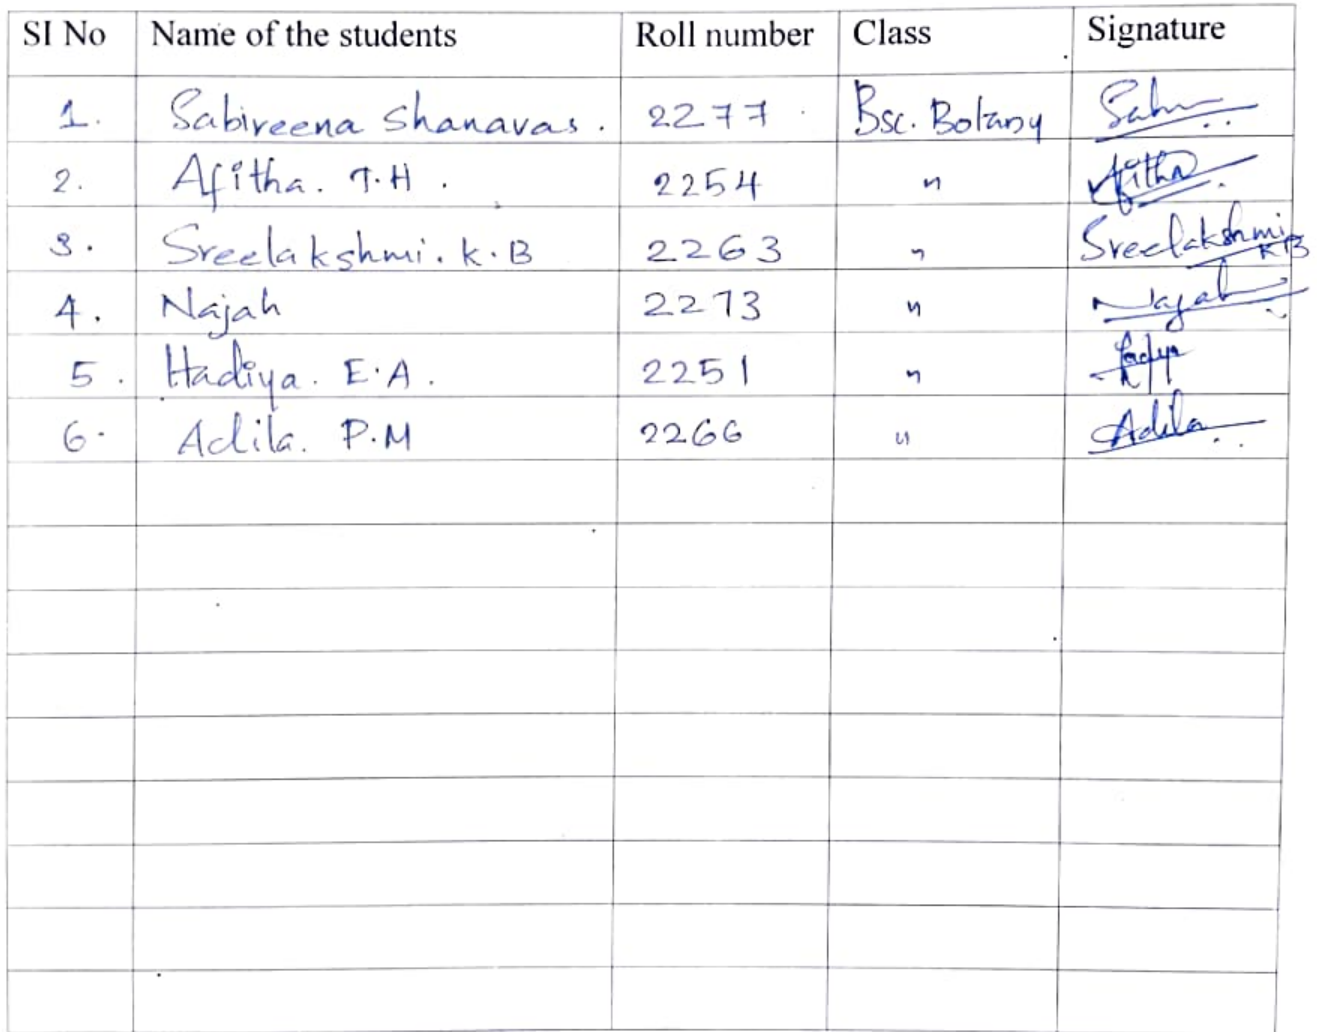 SI No Name of the students Roll number Class Signature
1. Sabireena Shanavas. 2277 Bsc. Botany Sabi
2. Afitha. T.H. 2254 " Afitha
3. Sreelakshmi. K.B 2263 " Sreelakshmi KB
4. Najah 2273 " Najah
5. Hadiya. E.A. 2251 "
6. Adila. P.M 2266 " Adila